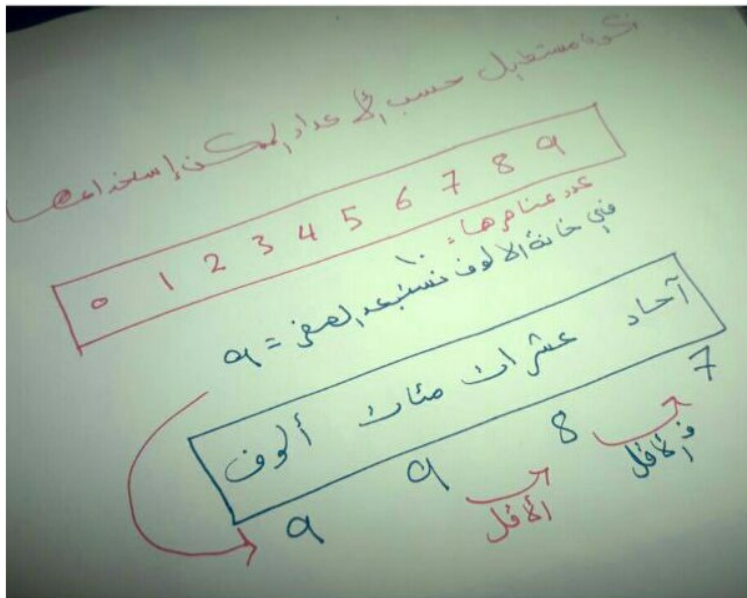 نكون مستطيل حسب الأعداد الممكن إستخدامها
0 1 2 3 4 5 6 7 8 9
عدد عناصرها = ١٠
في خانة الالوف نستبعد الصفر = 9
آحاد عشرات مئات ألوف
9 9 8 7
الأقل الأقل